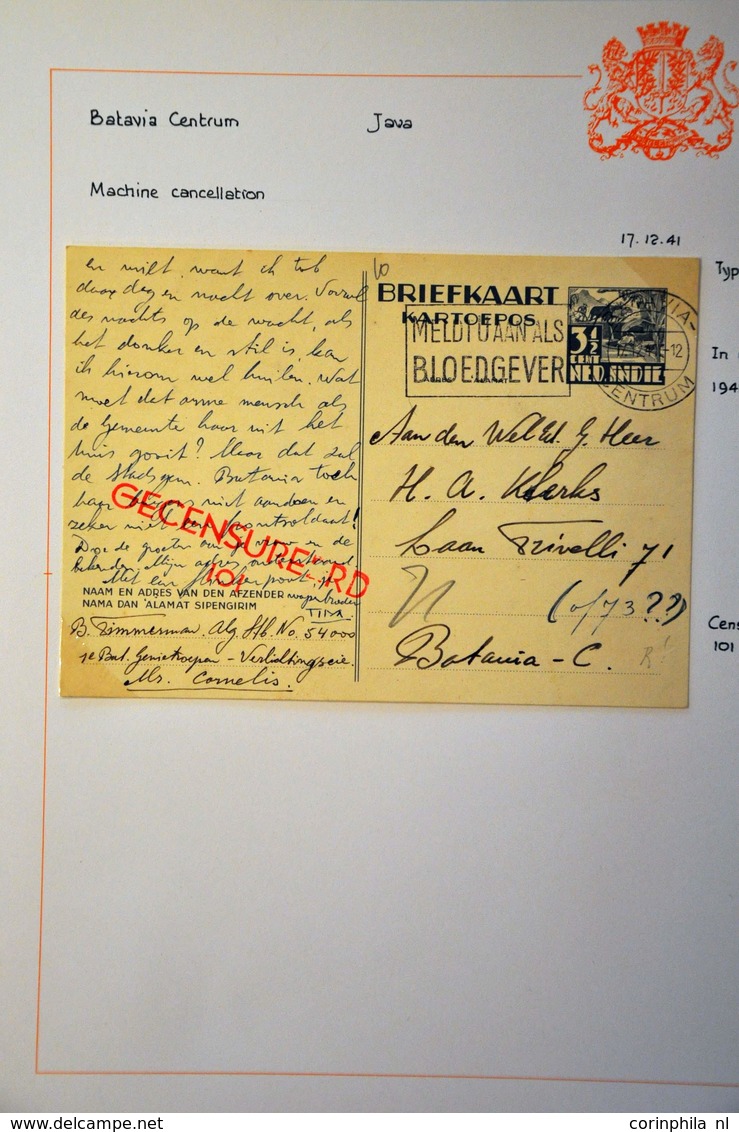 Batavia Centrum Java
Machine cancellation
17.12.41
Typ
In
194
Cens
101
en wilt, want ik tob
daar dag en nacht over. Vooral
des nachts op de wacht, als
het donker en stil is, kan
ik hierom wel huilen. Wat
moet dat arme mensch als
de Gemeente haar uit het
huis gooit? Maar dat zal
de Stadsgem. Batavia toch
niet aandoen en
zeker niet een frontsoldaat!
Doe de groeten aan je vrouw en de
Met een
GECENSUREERD
101
NAAM EN ADRES VAN DEN AFZENDER
NAMA DAN ALAMAT SIPENGIRIM
TIM
B. Timmerman. Alg. Stb. No. 54000
1e Bat. Genietroepen - Verlichtingscie.
Mr. Cornelis.
BRIEFKAART
KARTOEPOS
MELDT U AAN ALS
BLOEDGEVER
3½
CENT
NED. INDIE
BATAVIA-
CENTRUM
Aan den Wel Ed. G. Heer
H. A. Klerks
Laan Trivelli 71
(of 73??)
Batavia - C.
corinphila nl
delcampe.net